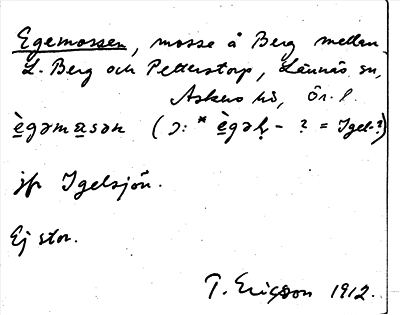 Egemossen, mosse å Berg mellan
L. Berg och Petterstorp, Lännäs sn,
Askers hd, Ör. l.
ègəmasən (ɔ: * ègəḷ - ? = Igel-?)
jfr Igelsjön.
Ej stor.
T. Ericsson 1912.